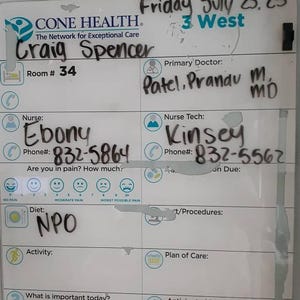 CONE HEALTH
The Network for Exceptional Care
Friday July 25.25
3 West
Craig Spencer
Room # 34
Primary Doctor:
Patel, Pranav M,
MD
Nurse:
Ebony
Phone#: 832-5864
Nurse Tech:
Kinsey
Phone#: 832-5562
Are you in pain? How much?
on Due:
NO PAIN
MODERATE PAIN
WORST POSSIBLE PAIN
Diet:
NPO
t/Procedures:
Activity:
Plan of Care:
What is important today?